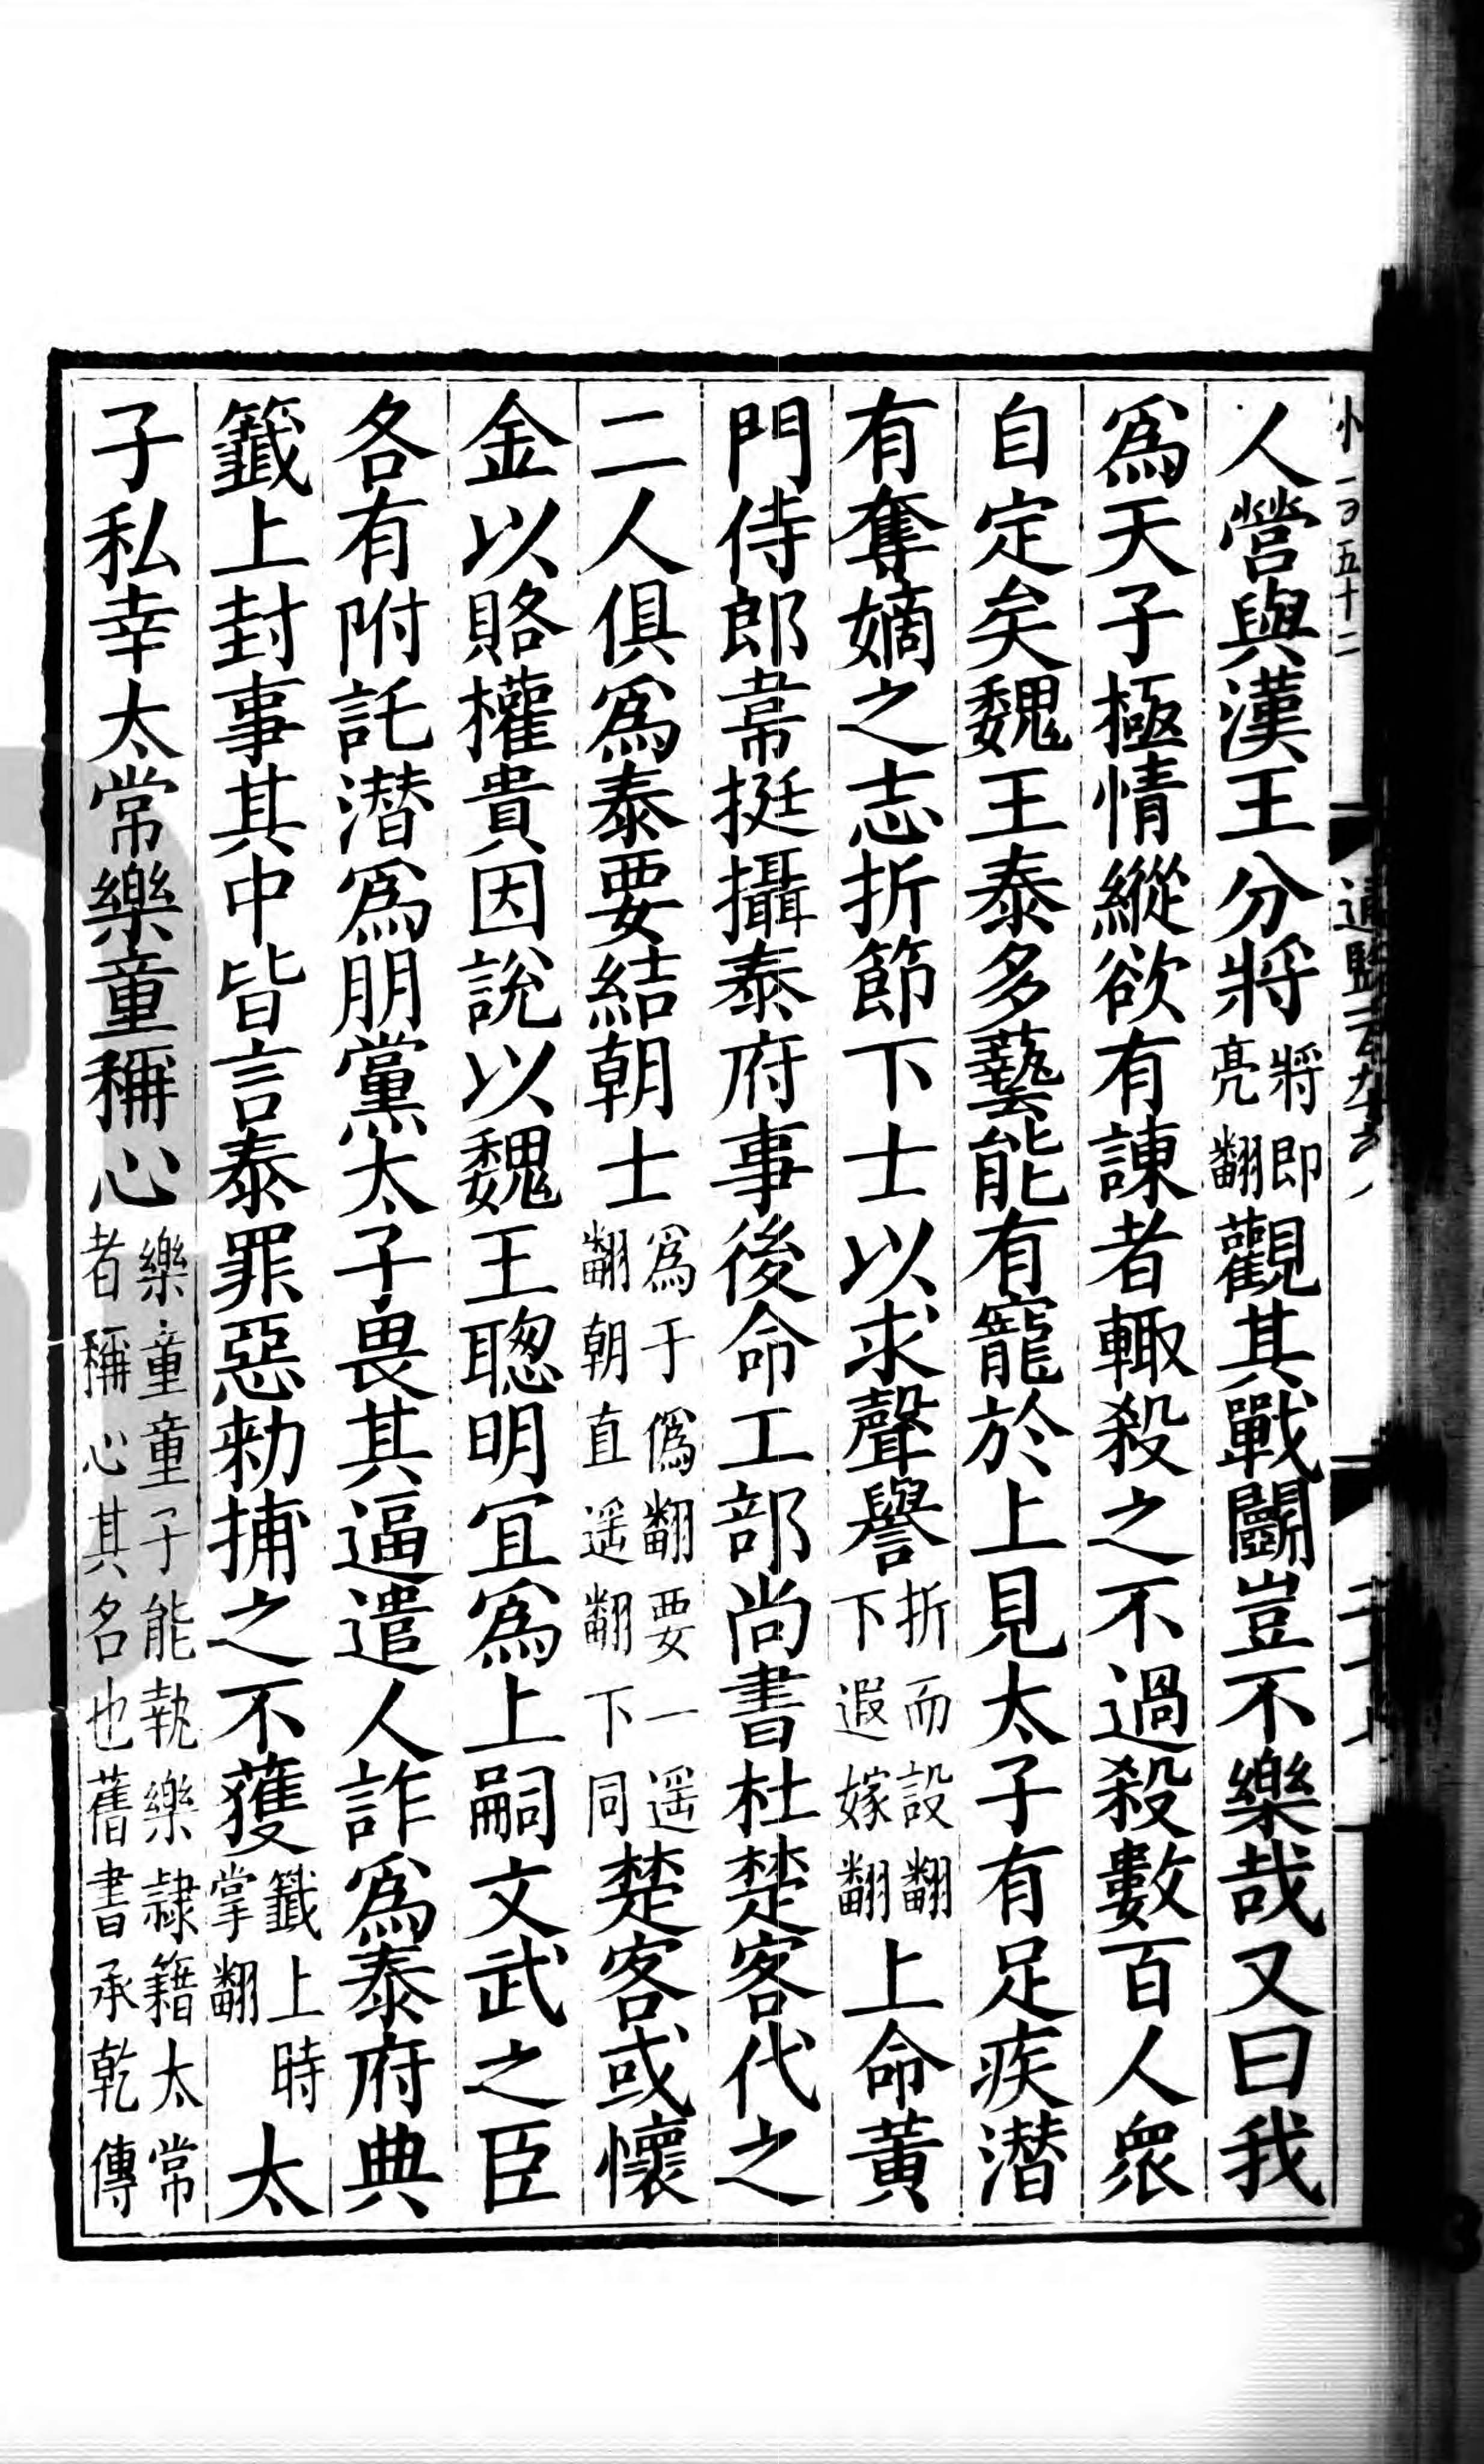 小一百五十二
通鑑一百九十六
人營與漢王分將將即亮翻觀其戰鬬豈不樂哉又曰我
爲天子極情縱欲有諫者輒殺之不過殺數百人衆
自定矣魏王泰多藝能有寵於上見太子有足疾潜
有奪嫡之志折節下士以求聲譽折而設翻下遐嫁翻上命黃
門侍郎韋挺攝泰府事後命工部尚書杜楚客代之
二人俱爲泰要結朝士爲于僞翻要一遥翻朝直遥翻下同楚客或懷
金以賂權貴因説以魏王聦明宜爲上嗣文武之臣
各有附託潜爲朋黨太子畏其逼遣人詐爲泰府典
籤上封事其中皆言泰罪惡勑捕之不獲籤上時掌翻太
子私幸太常樂童稱心樂童童子能執樂隷籍太常者稱心其名也舊書承乾傳